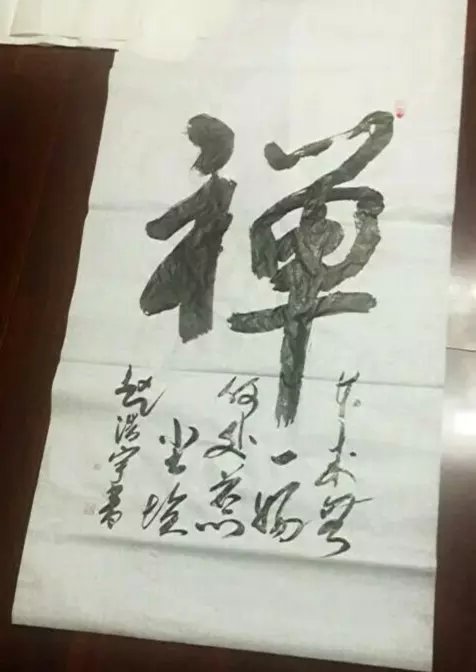 禅
本来無
一物
何处惹
尘埃
赵宇書